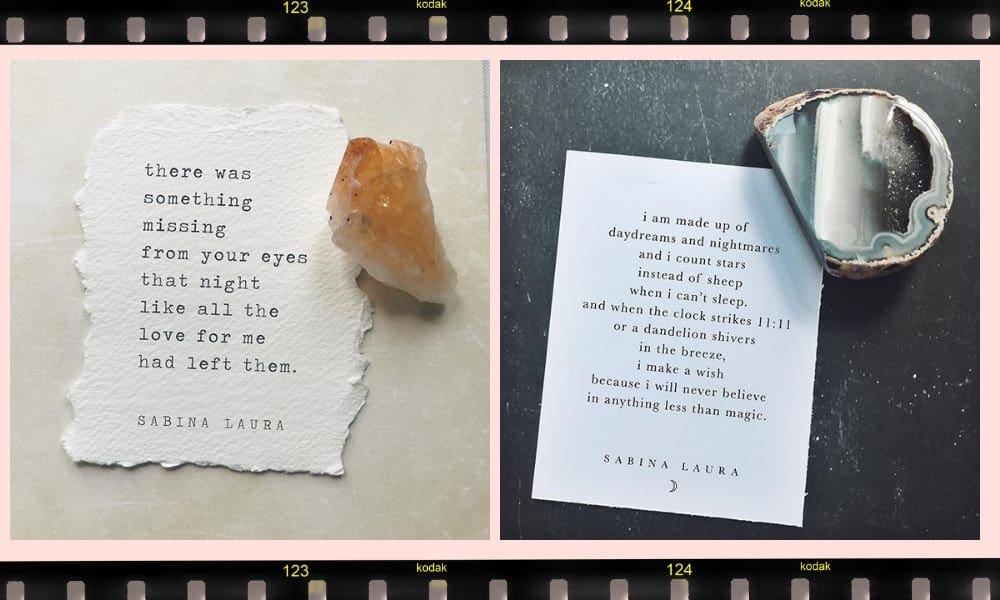 123 kodak 124 kodak
there was
something
missing
from your eyes
that night
like all the
love for me
had left them.
SABINA LAURA
i am made up of
daydreams and nightmares
and i count stars
instead of sheep
when i can't sleep.
and when the clock strikes 11:11
or a dandelion shivers
in the breeze,
i make a wish
because i will never believe
in anything less than magic.
SABINA LAURA
123 kodak 124 kodak